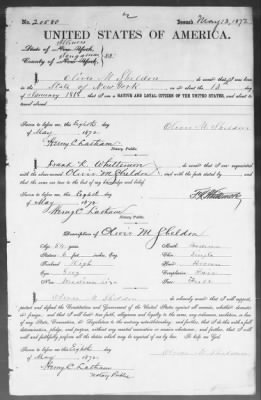 No. 20580 Issued May 13, 1872
UNITED STATES OF AMERICA.
Illinois
State of New York,
Sangamon
County of New York, } SS.
I, Oliver M Sheldon do swear that I was born
in the State of New York on or about the 13
of January 1818 that I am a NATIVE AND LOYAL CITIZEN OF THE UNITED STATES, and about
to travel abroad.
Sworn to before me, this Eighth
of May 1872
Henry C. Latham
Notary Public.
Oliver M Sheldon
I, Frank R. Whittemore do swear that I am acquainted
with the above named Oliver M Sheldon and with the facts stated by him, and
that the same are true to the best of my knowledge and belief.
Sworn to before me, this Eighth
of May 1872
Henry C. Latham
Notary Public.
Description of Oliver M Sheldon
Age,
Stature, 6 feet
Forehead, High
Eyes, Grey
Nose, Medium size
Mouth, Medium
Chin,
Hair, Brown
Complexion,
Face,
I, Oliver M Sheldon do solemnly swear that I will support,
protect and defend the Constitution and Government of the United States against all enemies, whether domestic
or foreign, and that I will bear true faith, allegiance and loyalty to the same, any ordinance, resolution or law
of any State, Convention or Legislature to the contrary notwithstanding; and further, that I do this with a full
determination, pledge, and purpose, without any mental reservation or evasion whatsoever, and further, that I will
well and faithfully perform all the duties which may be required of me by law. So help me God.
Sworn to before me, this Eighth
of May 1872
Henry C. Latham
Notary Public
Oliver M Sheldon